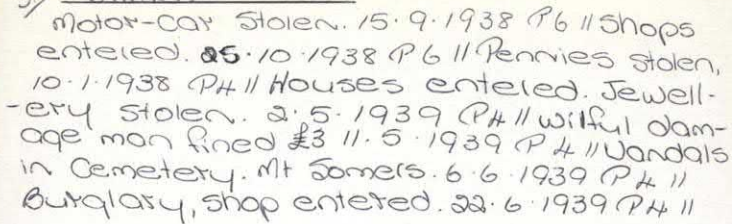 Motor-car Stolen. 15.9.1938 P6 // Shops
entered. 25.10.1938 P6 // Pennies stolen,
10.1.1938 P4 // Houses entered. Jewell-
-ery Stolen. 2.5.1939 P4 // Wilful dam-
age man fined £3 11.5.1939 P4 // Vandals
in Cemetery. Mt Somers. 6.6.1939 P4 //
Burglary, shop entered. 22.6.1939 P4 //